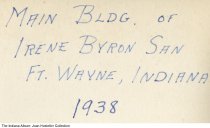 MAIN BLDG. OF
IRENE BYRON SAN
FT. WAYNE, INDIANA
1938
The Indiana Album: Joan Hostetler Collection